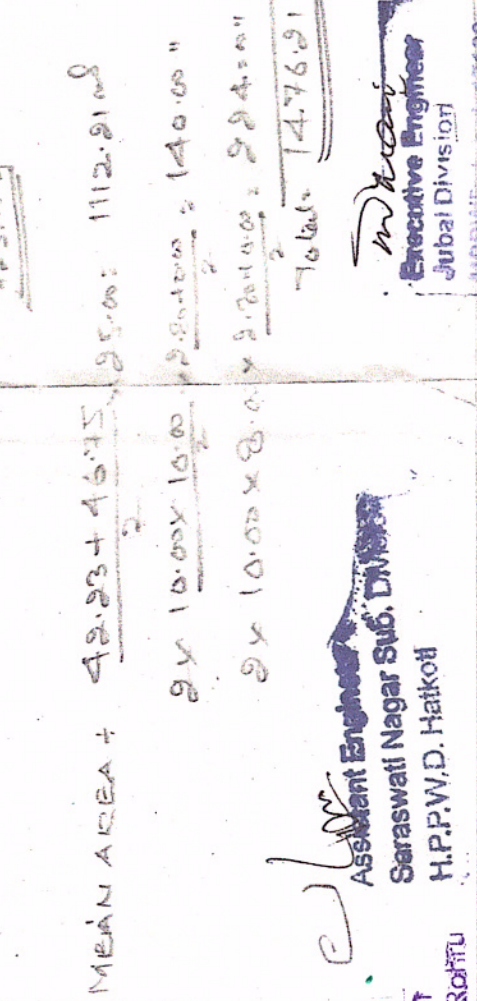 MEAN AREA ÷ 42.23 + 46.75 / 2 × 25.00 = 1112.21
2 × 10.00 × 10.00 / 2 × 2.80+0.00 / 2 = 140.00 "
2 × 10.00 × 8.0 × 2.80+0.00 / 2 = 224.00 "
Total. 1476.21
Assistant Engineer
Saraswati Nagar Sub. Division
H.P.P.W.D. Hatkoti
Executive Engineer
Jubal Division
Rohru